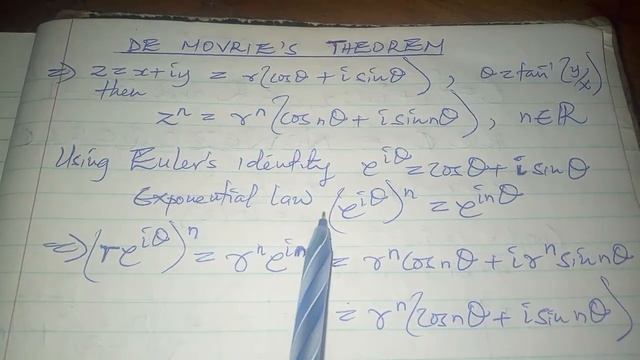 DE MOVRIE'S THEOREM
⇒ z = x + iy = r(cosθ + i sinθ), θ = tan⁻¹(y/x)
then
zⁿ = rⁿ(cos nθ + i sin nθ), n ∈ ℝ
Using Euler's identity e^{iθ} = cosθ + i sinθ
Exponential law (e^{iθ})ⁿ = e^{inθ}
⇒ (re^{iθ})ⁿ = rⁿe^{in = rⁿcos nθ + i rⁿ sin nθ
= rⁿ(cos nθ + i sin nθ)